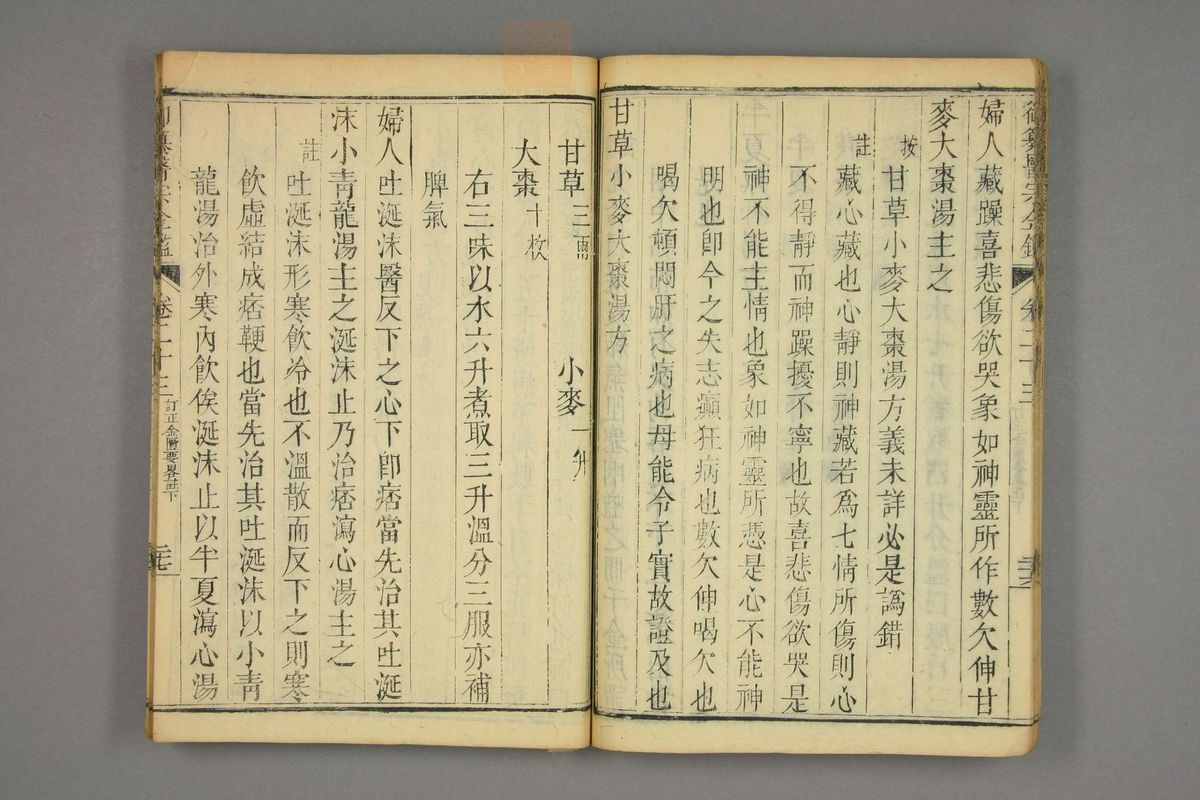 御纂醫宗金鑑 卷二十三
婦人藏躁喜悲傷欲哭象如神靈所作數欠伸甘
麥大棗湯主之
按甘草小麥大棗湯方義未詳必是譌錯
註藏心藏也心靜則神藏若爲七情所傷則心
不得靜而神躁擾不寧也故喜悲傷欲哭是
神不能主情也象如神靈所憑是心不能神
明也卽今之失志癲狂病也數欠伸喝欠也
喝欠頓悶肝之病也母能令子實故證及也
甘草小麥大棗湯方
甘草三兩 小麥一升
大棗十枚
右三味以水六升煮取三升溫分三服亦補
脾氣
婦人吐涎沫醫反下之心下卽痞當先治其吐涎
沫小青龍湯主之涎沫止乃治痞瀉心湯主之
註吐涎沫形寒飲冷也不溫散而反下之則寒
飲虛結成痞鞕也當先治其吐涎沫以小青
龍湯治外寒內飲俟涎沫止以半夏瀉心湯
御纂醫宗金鑑 卷二十三 訂正金匱要畧註下 三七